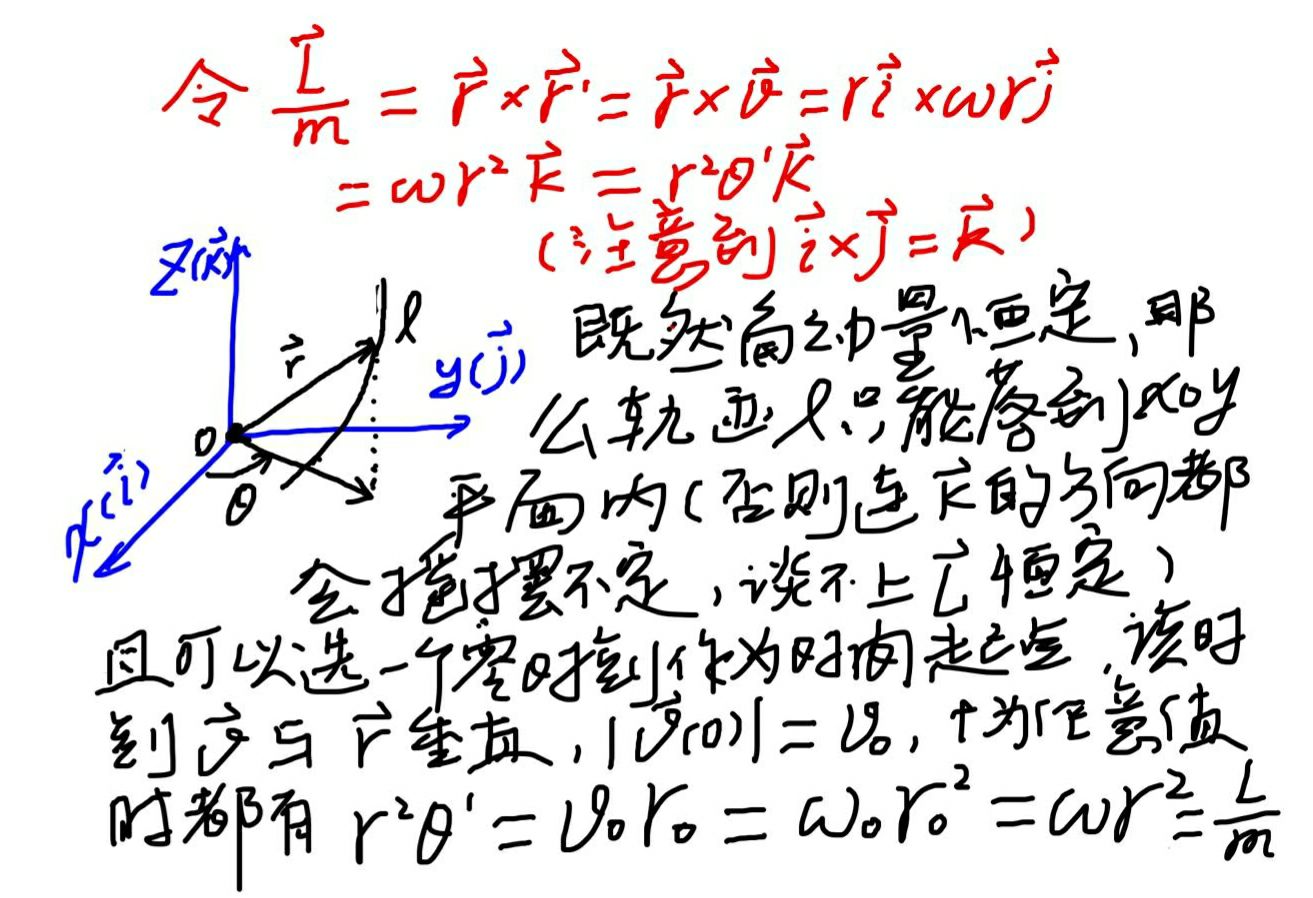 令 \frac{\vec{L}}{m} = \vec{r} × \vec{r}' = \vec{r} × \vec{v} = r\vec{i} × ωr\vec{j}
= ωr²\vec{k} = r²θ'\vec{k}
(注意到 \vec{i} × \vec{j} = \vec{k})
z(\vec{k})
\vec{r}
l
y(\vec{j})
O
θ
x(\vec{i})
既然角动量恒定,那
么轨迹l只能落到xoy
平面内(否则连\vec{k}的方向都
会摇摆不定,谈不上\vec{L}恒定)
且可以选一个零时刻作为时间起点,该时
刻\vec{v}与\vec{r}垂直,|\vec{v}(0)| = v₀,t为任意值
时都有 r²θ' = v₀r₀ = ω₀r₀² = ωr² = \frac{L}{m}